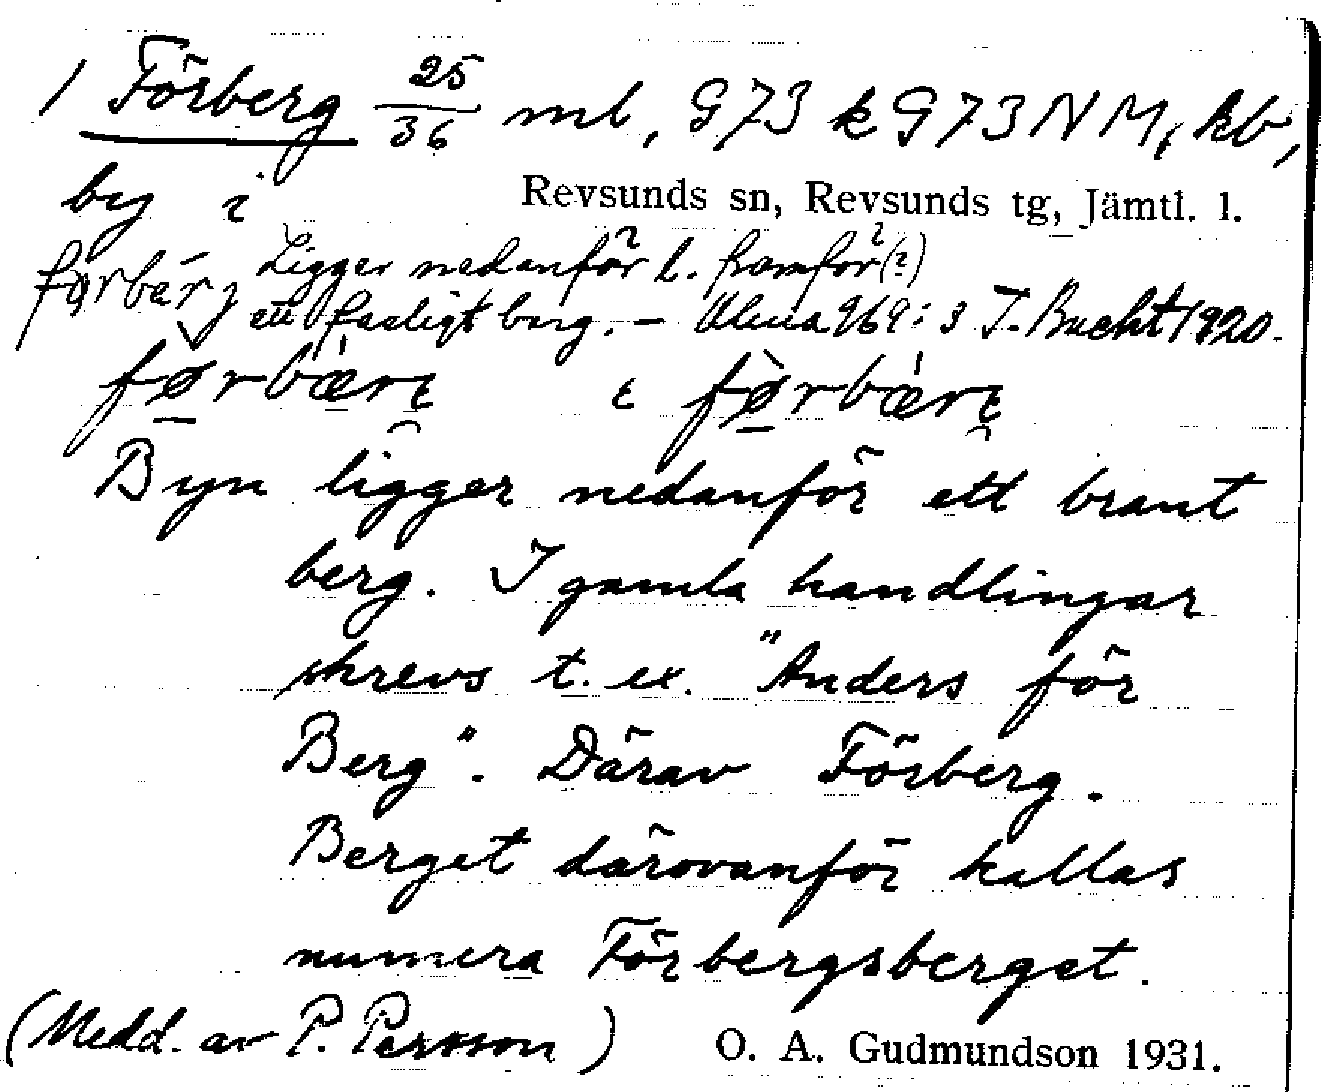 1 Förberg 25/36 ml, G73 k G73 NM, kb,
by i Revsunds sn, Revsunds tg, Jämtl. l.
Ligger nedanför l. framför (?)
ett farligt berg. – Ulma 969:3 J. Bucht 1920.
førbǽrɛ ɩ fø̀rbǽrɛ
Byn ligger nedanför ett brant
berg. I gamla handlingar
skrevs t. ex. "Anders för
Berg". Därav Förberg.
Berget därovanför kallas
numera Förbergsberget.
(Medd. av P. Persson) O. A. Gudmundson 1931.